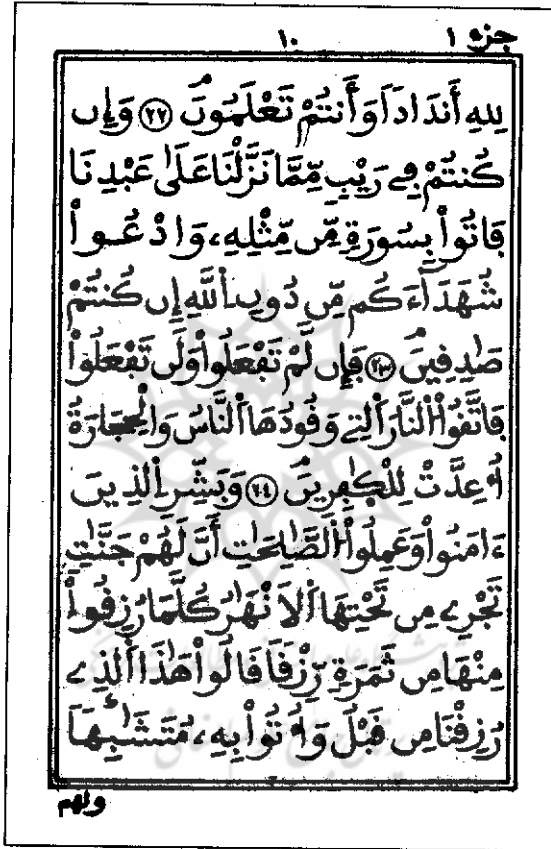 جزء ١ ١٠
لِلهِ أَندَاداٗ وَأَنتُمْ تَعْلَمُونَۖ ٢٢ وَإِن
كُنتُمْ فِے رَيْبٖ مِّمَّا نَزَّلْنَا عَلَىٰ عَبْدِنَا
فَاتُواْ بِسُورَةٖ مِّن مِّثْلِهِۦ وَادْعُواْ
شُهَدَآءَكُم مِّن دُونِ اِ۬للَّهِ إِن كُنتُمْ
صَٰدِقِينَۖ ٢٣ فَإِن لَّمْ تَفْعَلُواْ وَلَن تَفْعَلُواْ
فَاتَّقُواْ اُ۬لنَّارَ اَ۬لتِے وَقُودُهَا اَ۬لنَّاسُ وَالْحِجَارَةُ
أُعِدَّتْ لِلْكَٰفِرِينَۖ ٢٤ وَبَشِّرِ اِ۬لذِينَ
ءَامَنُواْ وَعَمِلُواْ اُ۬لصَّٰلِحَٰتِ أَنَّ لَهُمْ جَنَّٰتٖ
تَجْرِے مِن تَحْتِهَا اَ۬لَانْهَٰرُ كُلَّمَا رُزِقُواْ
مِنْهَا مِن ثَمَرَةٖ رِّزْقاٗ قَالُواْ هَٰذَا اَ۬لذِے
رُزِقْنَا مِن قَبْلُ وَأُتُواْ بِهِۦ مُتَشَٰبِهاٗ
ولهم